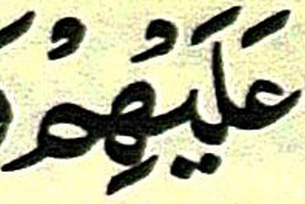 عَلَيْهِمْ